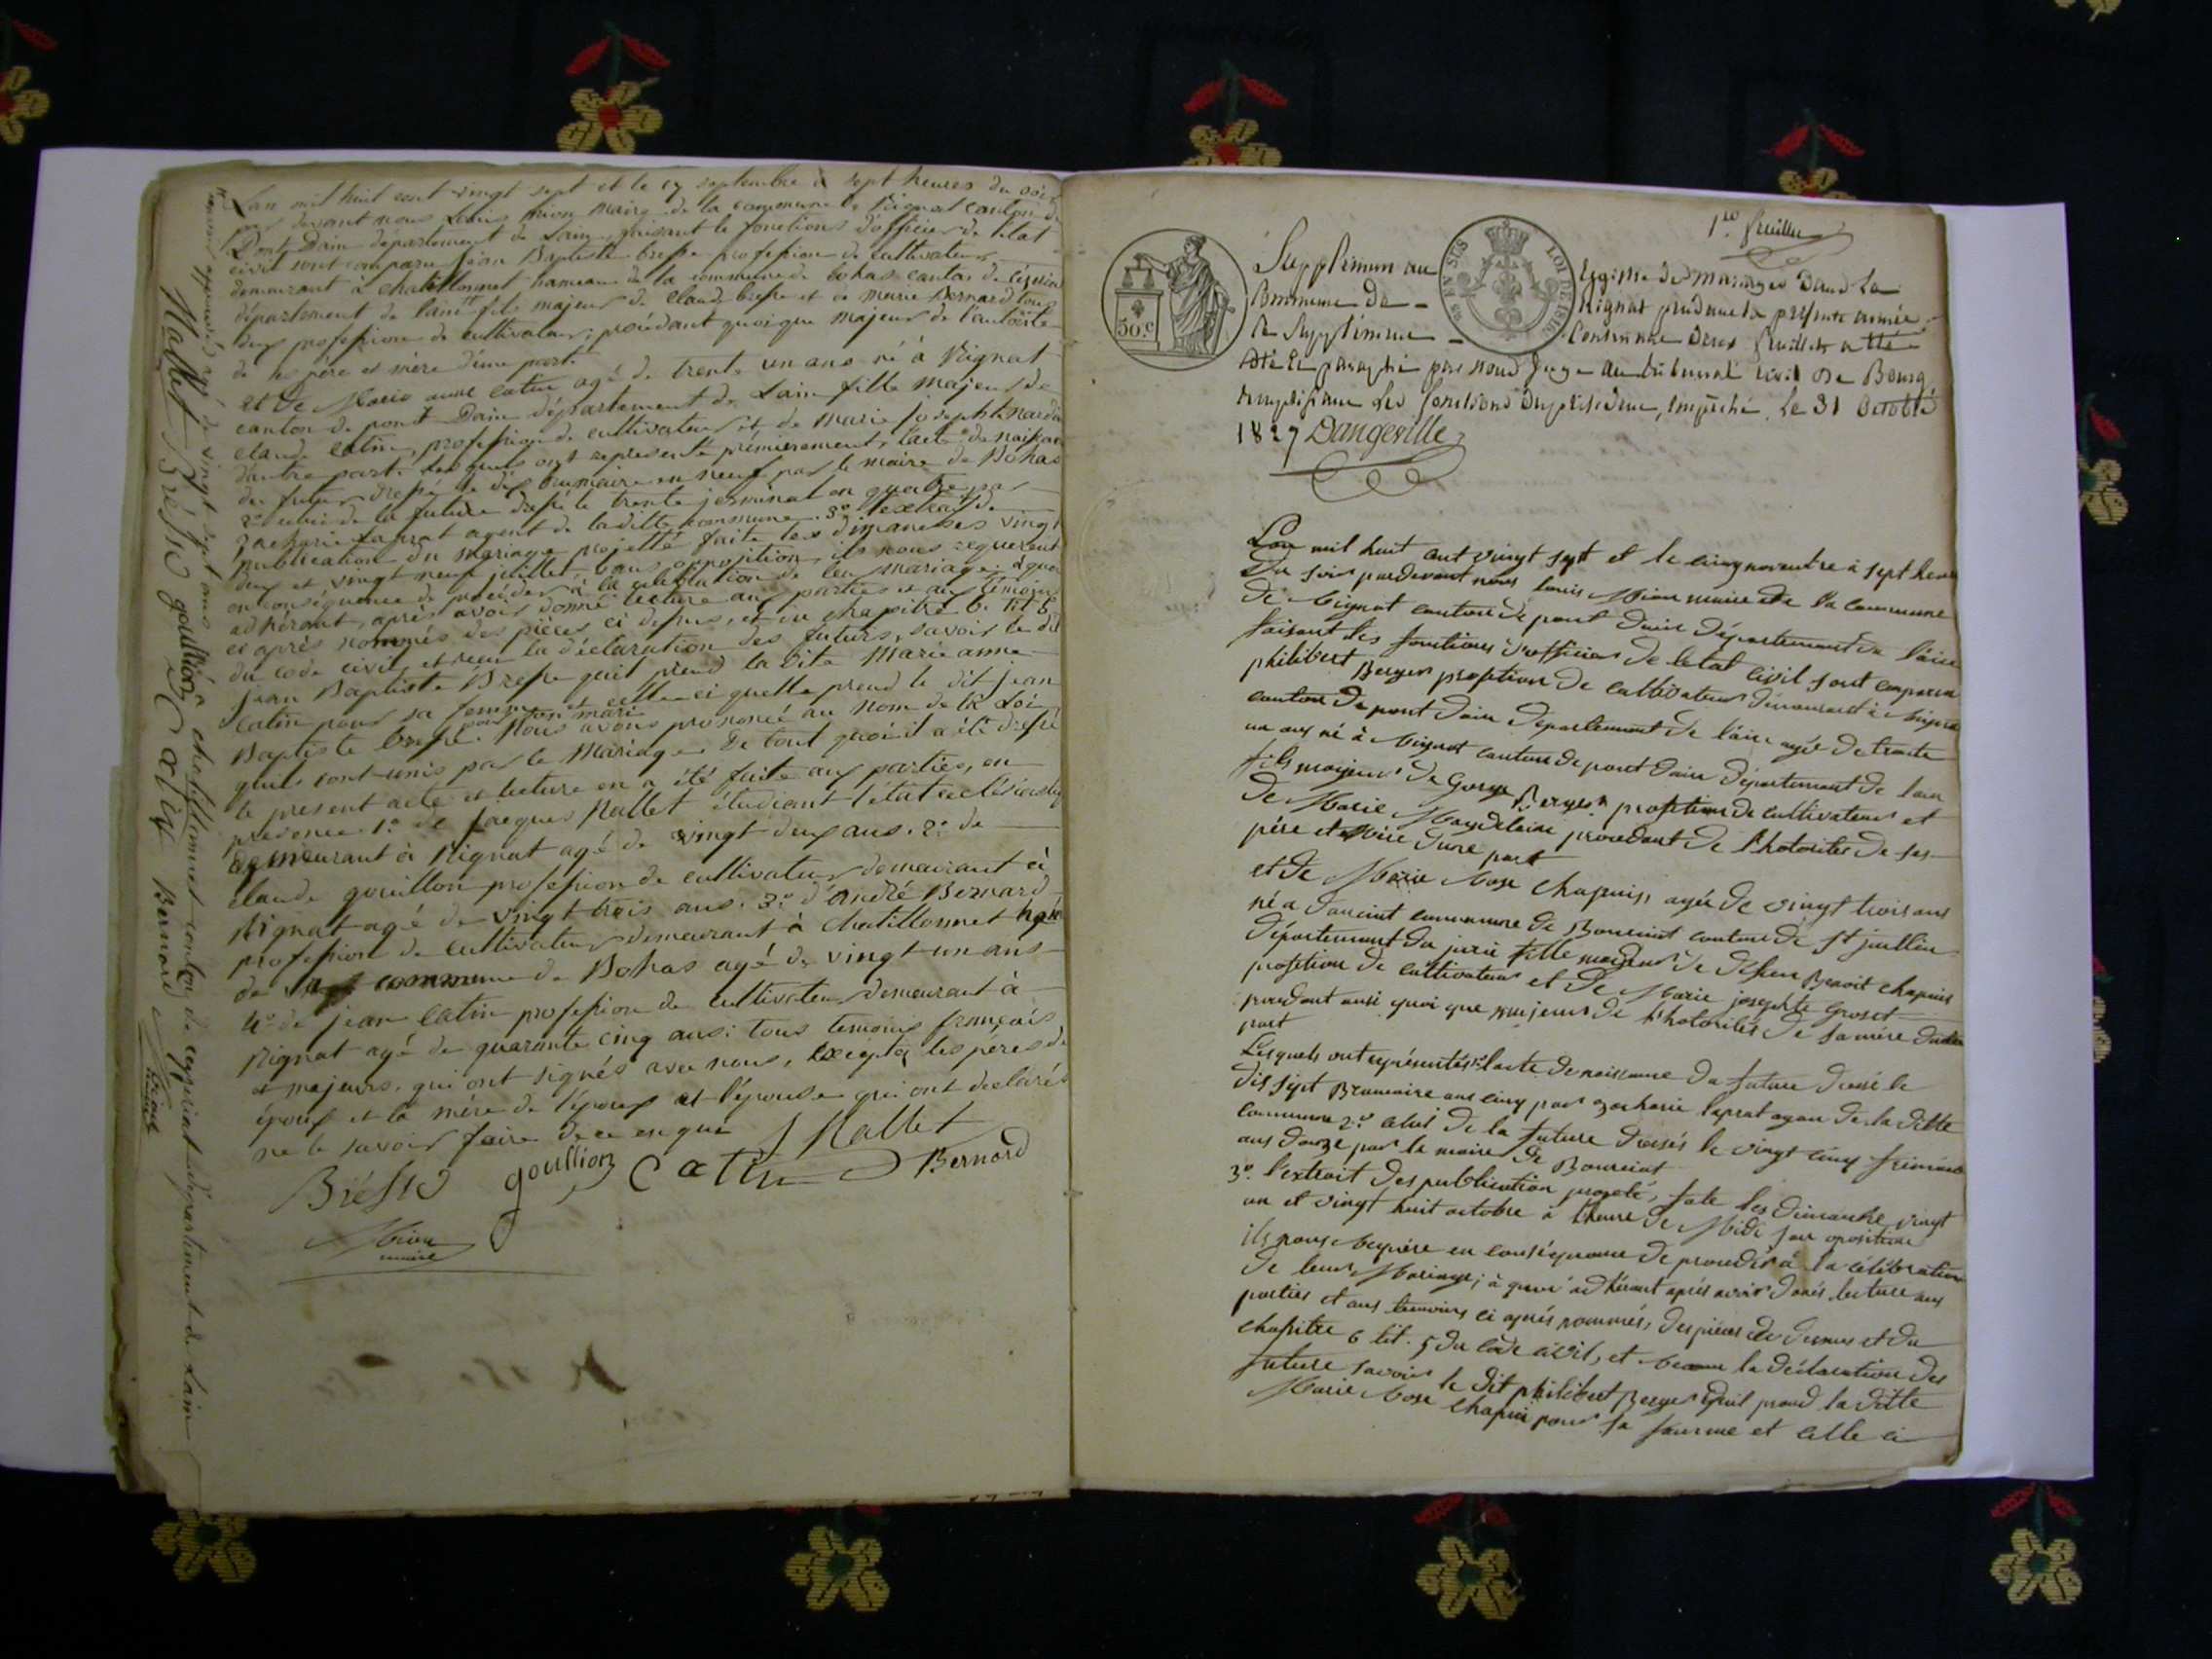 L'an mil huit cent vingt sept et le 17 septembre à sept heures du soir
par devant nous Louis Mion maire de la commune de Rignat canton de
Pont Dain département de Lain, faisant le fonctions d'officier de l'état
civil sont comparu jean Baptiste bresse profession de cultivateur
demeurant à chatillonnet hameau de la commune de bohas canton de ceyzeriat
département de lain fils majeur de claude bresse et de marie Bernard tous
deux profession de cultivateur; procédant quoique majeur de l'autorité
de ses père et mère d'une part
et De Marie anne catin agé de trente un ans né à Rignat
canton de pont Dain département de Lain fille majeur de
claude catin, profession de cultivateur et de marie josephte
d'autre part. Lesquels ont representé prémierement, l'acte de naissance
du futur dressé le dix brumaire an neuf par le maire de Bohas
2o celui de la future dressé le trente jerminal an quatre par
zacharie Laprat agent de ladite commune. 3o l'extrait de
publication du mariage projetté faite les dimanches vingt
deux et vingt neuf juillet sans opposition, ils nous requerent
en conséquence de procéder à la célébration de leu mariage: à quoi
adhérant, après avoir donné lecture aux parties et aux témoins
ci après nommés des pièces ci dessus, et du chapitre 6. tit 5
du code civil, et reçu la déclaration des futurs, savoir le dit
jean Baptiste Bresse quil prend la dite Marie anne
catin pour sa femme et celle ci quelle prend le dit jean
Baptiste bresse pour son mari. Nous avons prononcé au nom de la Loi
quils sont unis par le Mariage. De tout quoi il a été dressé
le present acte et lecture en a été faite aux parties, en
présence 1o de jacques Mallet étudiant l'état eclésiastiq
demeurant à Rignat agé de vingt deux ans. 2o de
claude gouillon profession de cultivateur demeurant à
Rignat agé de vingt trois ans. 3o d'André Bernard
profession de cultivateur demeurant à Chatillonnet
de commune de Bohas agé de vingt un ans
4o de jean catin profession de cultivateur demeurant à
Rignat agé de quarante cinq ans: tous temoins français
et majeurs, qui ont signés avec nous, excepté les pères de
époux et la mère de l'époux et l'épouse qui ont declarés
ne le savoir faire de ce enquis J Mallet
Brésse goullion Catin Bernard
Mion
maire
agé de vingt sept ans à chatillonnet canton de ceyzeriat département de Lain
Mallet Brésse goullion Catin Bernard Mion
1re feuillet
50.c
EN SUS
LOI DE 1816
Supplément au Registre de Mariages Dans La
Commune de Rignat pendant la présente année
Le Supplément Contenant Deux feuillets a été
coté Et paraphé par nous Juge au tribunal civil De Bourg,
remplissant Les fonctions Du président, Empêché, Le 31 Octobre
1827 Dangeville
L'an mil huit cent vingt sept et le cinq novembre à sept heures
Du soir pardevant nous louis Mion maire de la commune
de Rignat canton de pont dain Département de l'ain
faisant les fonctions d'officier de letat civil sont comparu
philibert Berger profetion de cultivateur demeurant à Rignat
canton de pont dain département de l'ain agé de trente
un ans né à Rignat canton de pont dain département de lain
fils majeur de George Berger profetion de cultivateur et
de Marie Magdelaine procedant de l'hotorites de ses
père et Mère dune part
et de Marie Rose Chapuis, agée de vingt trois ans
né a commune de Bourciat canton de st jullien
département du jura fille majeur de defeu Benoit Chapuis
profetion de cultivateur et de Marie josephte Groset
procedant ausi quoi que majeur de l'hotorités de sa mère dautre
part
Lesquels ont représentés 1o lacte de naissance du futur dressé le
dix sept Brumaire ans cinq par zacharie laprat agan de la ditte
commune 2o celui de la future dressés le vingt cinq frimaire
ans douze par la maire de Bourciat
3o l'extrait des publication projeté, fate les dimanche vingt
un et vingt huit octobre à l'heure de Midi san oposition
ils nous Requère en conséquence de procéder à la célébration
de leur Mariage; à quoi adhérant après avoir donés lecture aux
parties et aux temoins ci après nommés, des pièces de dessus et du
chapitre 6 tit. 5 du code civil, et Recu la déclaration des
future savoir le dit philibert Berger quil prend la ditte
Marie Rose Chapui pour sa femme et celle ci